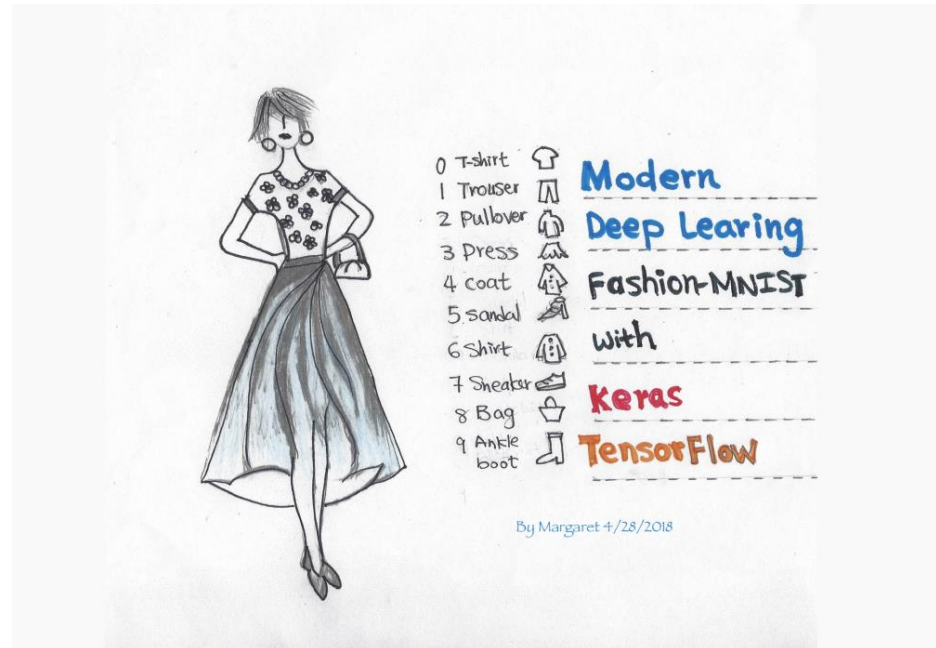 0 T-shirt
1 Trouser
2 Pullover
3 Press
4 coat
5 sandal
6 Shirt
7 Sneaker
8 Bag
9 Ankle
boot
Modern
Deep Learing
Fashion-MNIST
with
Keras
TensorFlow
By Margaret 4/28/2018